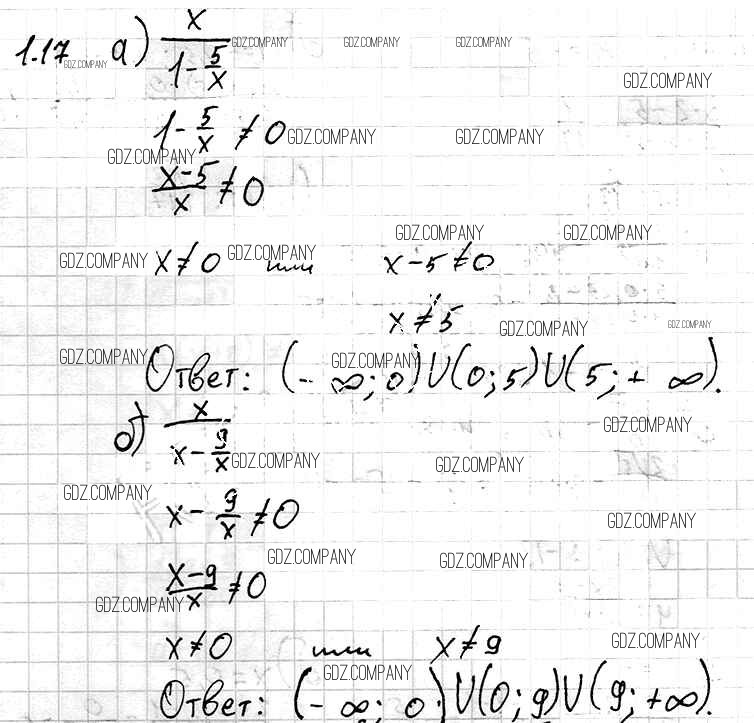 1.17 а) x/(1 - 5/x)
GDZ.COMPANY GDZ.COMPANY GDZ.COMPANY GDZ.COMPANY
GDZ.COMPANY
1 - 5/x ≠ 0
GDZ.COMPANY GDZ.COMPANY
GDZ.COMPANY
(x-5)/x ≠ 0
GDZ.COMPANY GDZ.COMPANY
GDZ.COMPANY x ≠ 0 GDZ.COMPANY или x-5 ≠ 0
x ≠ 5
GDZ.COMPANY GDZ.COMPANY
GDZ.COMPANY GDZ.COMPANY
Ответ: (-∞; 0) U (0; 5) U (5; + ∞).
б) x/(x - 9/x)
GDZ.COMPANY
GDZ.COMPANY GDZ.COMPANY
GDZ.COMPANY
x - 9/x ≠ 0
GDZ.COMPANY
GDZ.COMPANY GDZ.COMPANY
(x-9)/x ≠ 0
GDZ.COMPANY
x ≠ 0 или x ≠ 9
GDZ.COMPANY
GDZ.COMPANY
Ответ: (-∞; 0) U (0; 9) U (9; +∞).